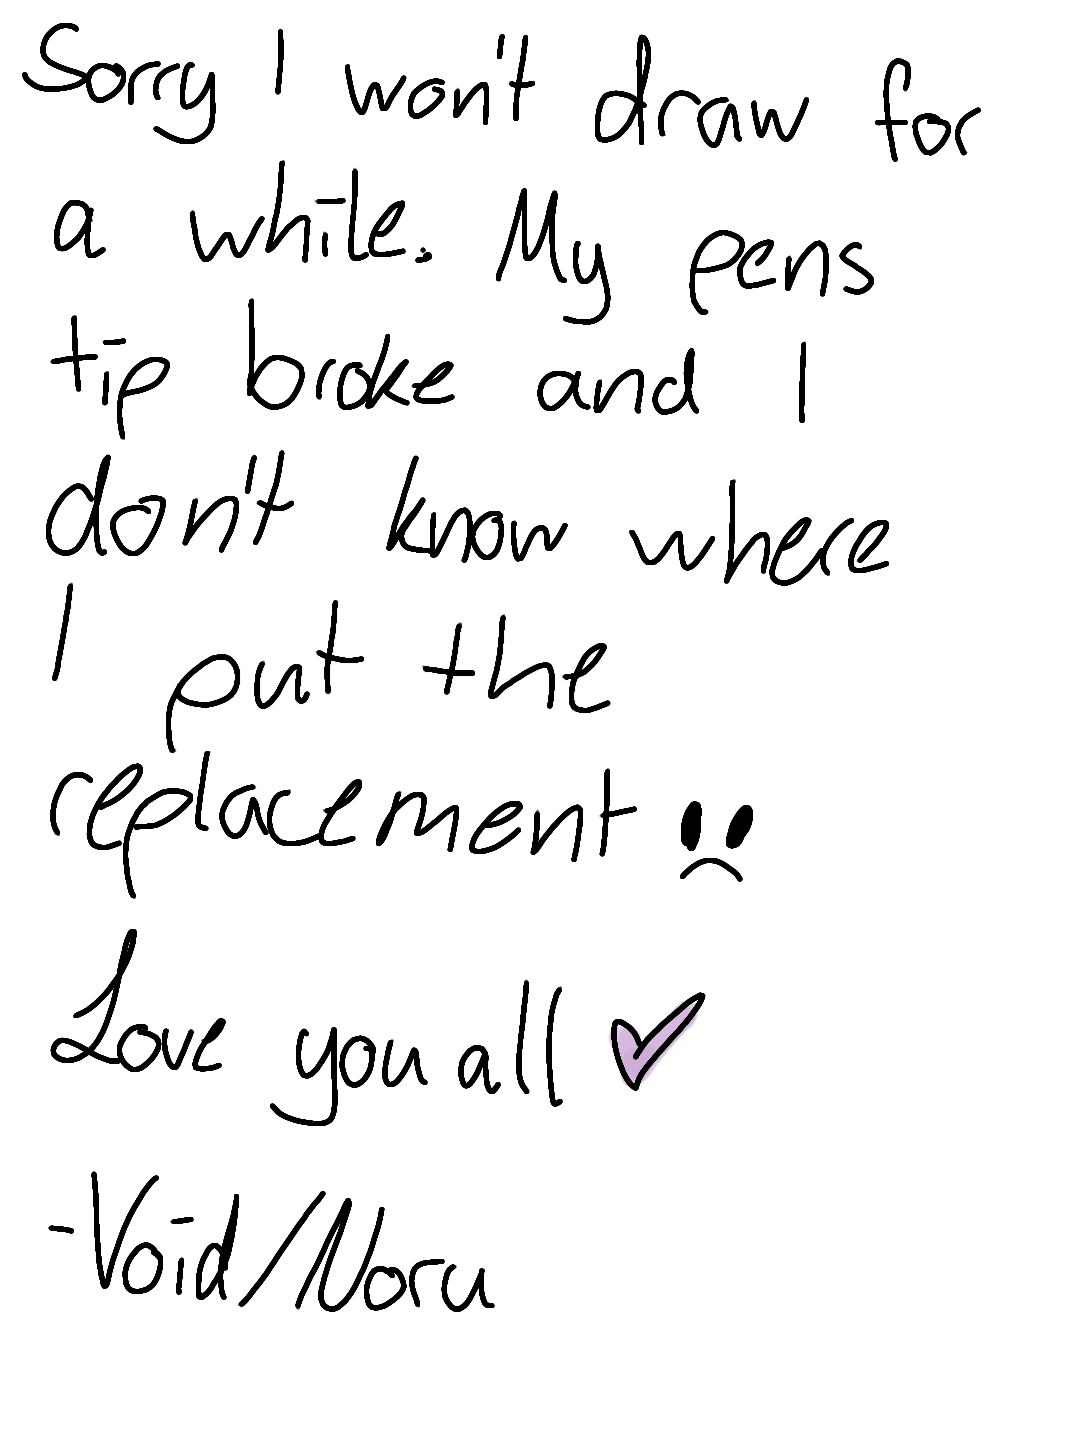 Sorry I won't draw for
a while. My pens
tip broke and I
don't know where
I put the
replacement
Love you all
-Void/Noru